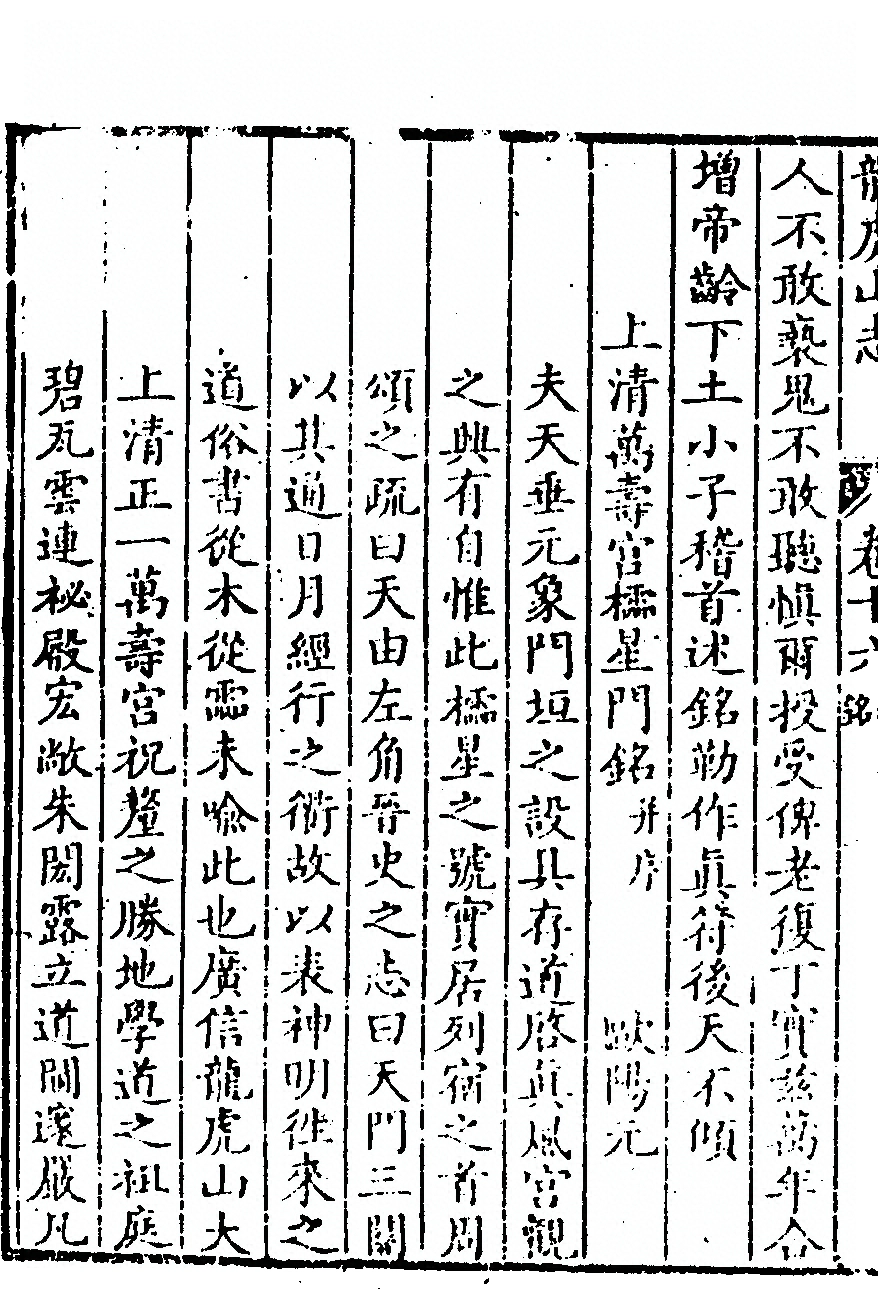 龍虎山志 卷十六 銘
人不敢褻鬼不敢聽愼爾授受俾老復丁寶茲萬年合
增帝齡下土小子稽首述銘勒作眞符後天不傾
上清萬壽宮櫺星門銘并序 歐陽元
夫天垂元象門垣之設具存道啓眞風宮觀
之興有自惟此櫺星之號實居列宿之首周
頌之疏曰天由左角晉史之志曰天門三關
以其通日月經行之衢故以表神明徃來之
道俗書從木從霝来喻此也廣信龍虎山大
上清正一萬壽宮祝釐之勝地學道之祖庭
碧瓦雲連祕殿宏敞朱閎露立道關邃嚴凡